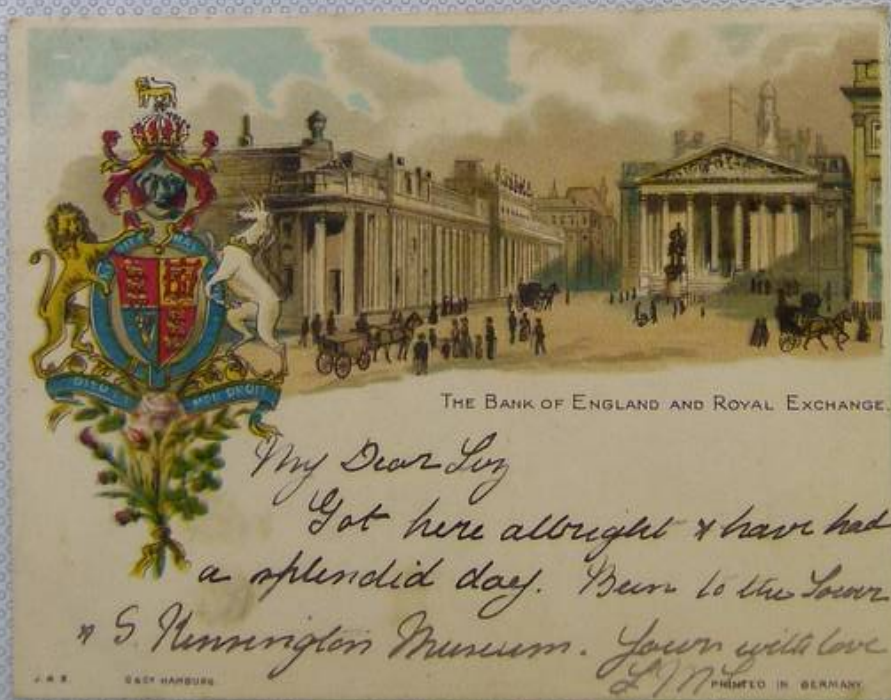 DIEU ET MON DROIT
THE BANK OF ENGLAND AND ROYAL EXCHANGE.
My Dear
Got here allright & have had
a splendid day. Been to the Tower
& S. Kensington Museum. Yours with love
J. M. S. G & Co HAMBURG PRINTED IN GERMANY